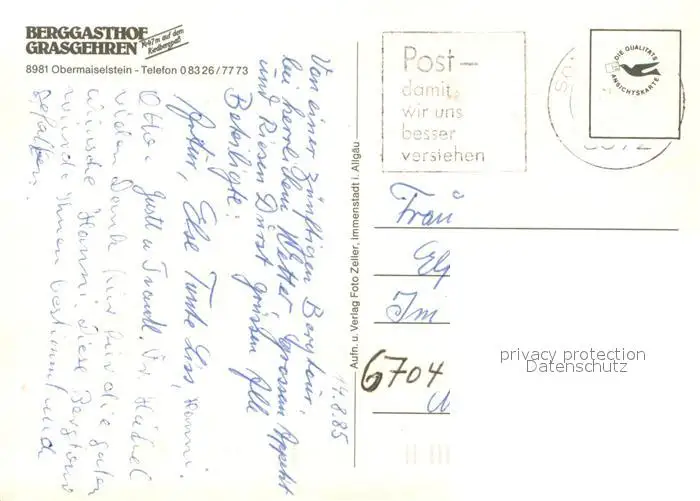 BERGGASTHOF
GRASGEHREN
1447m auf den
Riedbergpaß
8981 Obermaiselstein - Telefon 0 83 26 / 77 73
14.8.85
Von einer zünftigen Bergtour,
bei herrlichem Wetter grossen Appetit
und Riesen Durst grüssen Alle
Beteiligte:
Artur, Else Tante Liss, Hanni.
Otto. Gustl u Traudl.
vielen Dank für die guten
wünsche Hanni. diese Bergtour
würde Ihnen bestimmt auch
gefallen.
Aufn. u. Verlag Foto Zeller, Immenstadt i. Allgäu
Post –
damit
wir uns
besser
verstehen
DIE QUALITÄTS
ANSICHTSKARTE
Frau
El
Im
6704
privacy protection
Datenschutz